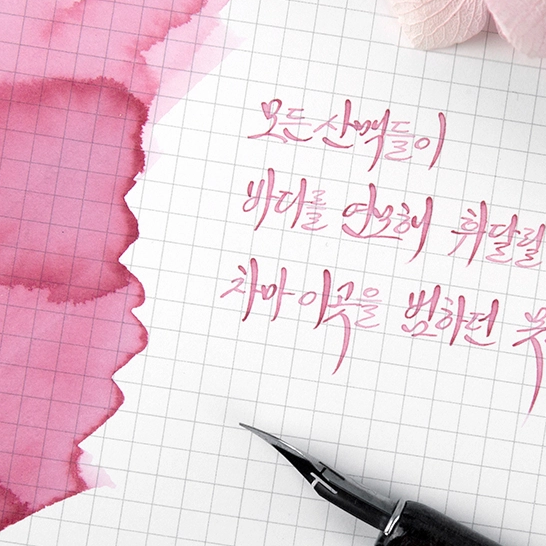 모든 산맥들이
바다를 연모해 휘달릴
차마 이곳을 범하던 못